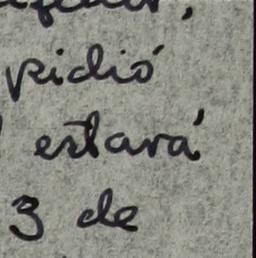 pidió
estará
3 de